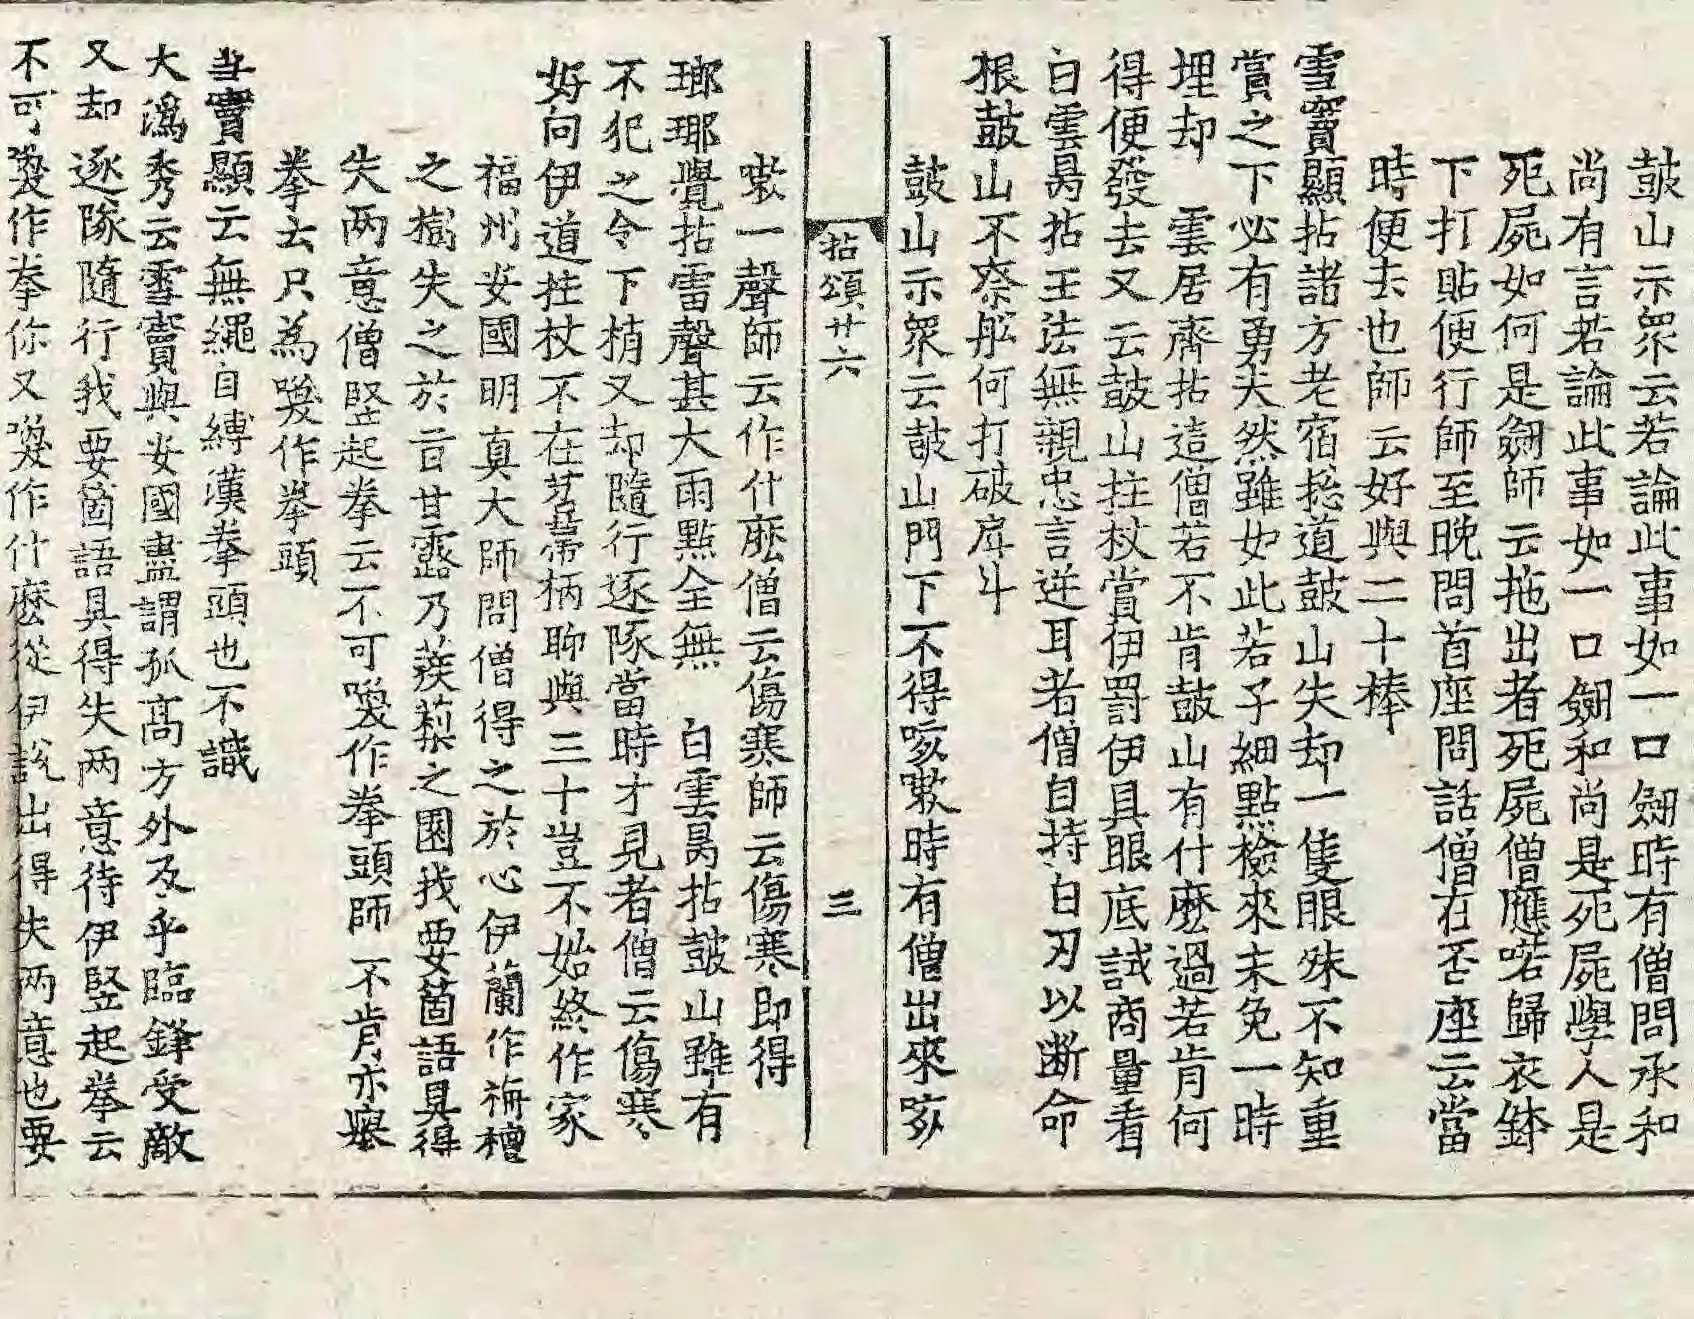 鼓山示眾云若論此事如一口劒時有僧問承和
尚有言若論此事如一口劒和尚是死屍學人是
死屍如何是劒師云拖出者死屍僧應喏歸衣鉢
下打貼便行師至晚問首座問話僧在否座云當
時便去也師云好與二十棒
雪竇顯拈諸方老宿捴道鼓山失却一隻眼殊不知重
賞之下必有勇夫然雖如此若子細點檢來未免一時
埋却　雲居齊拈這僧若不肯鼓山有什麽過若肯何
得便發去又云鼓山拄杖賞伊罰伊具眼底試商量看
白雲昺拈王法無親忠言逆耳者僧自持白刃以断命
根鼓山不察舩何打破戽斗
鼓山示眾云鼓山門下不得咳嗽時有僧出來咳
拈頌廿六
三
嗽一聲師云作什麽僧云傷寒師云傷寒即得
瑯瑘覺拈雷聲甚大雨點全無　白雲昺拈鼓山雖有
不犯之令下梢又却隨行逐隊當時才見者僧云傷寒
好向伊道拄杖不在苕菷柄聊與三十豈不始終作家
福州安國明真大師問僧得之於心伊蘭作栴檀
之樹失之於旨甘露乃蒺蔾之園我要箇語具得
失两意僧竪起拳云不可喚作拳頭師不肯亦舉
拳云只為喚作拳頭
雪竇顯云無繩自縛漢拳頭也不識
大溈秀云雪竇與安國盡謂孤高方外及乎臨鋒受敵
又却逐隊隨行我要箇語具得失两意待伊竪起拳云
不可喚作拳你又喚作什麽從伊說出得失两意也要